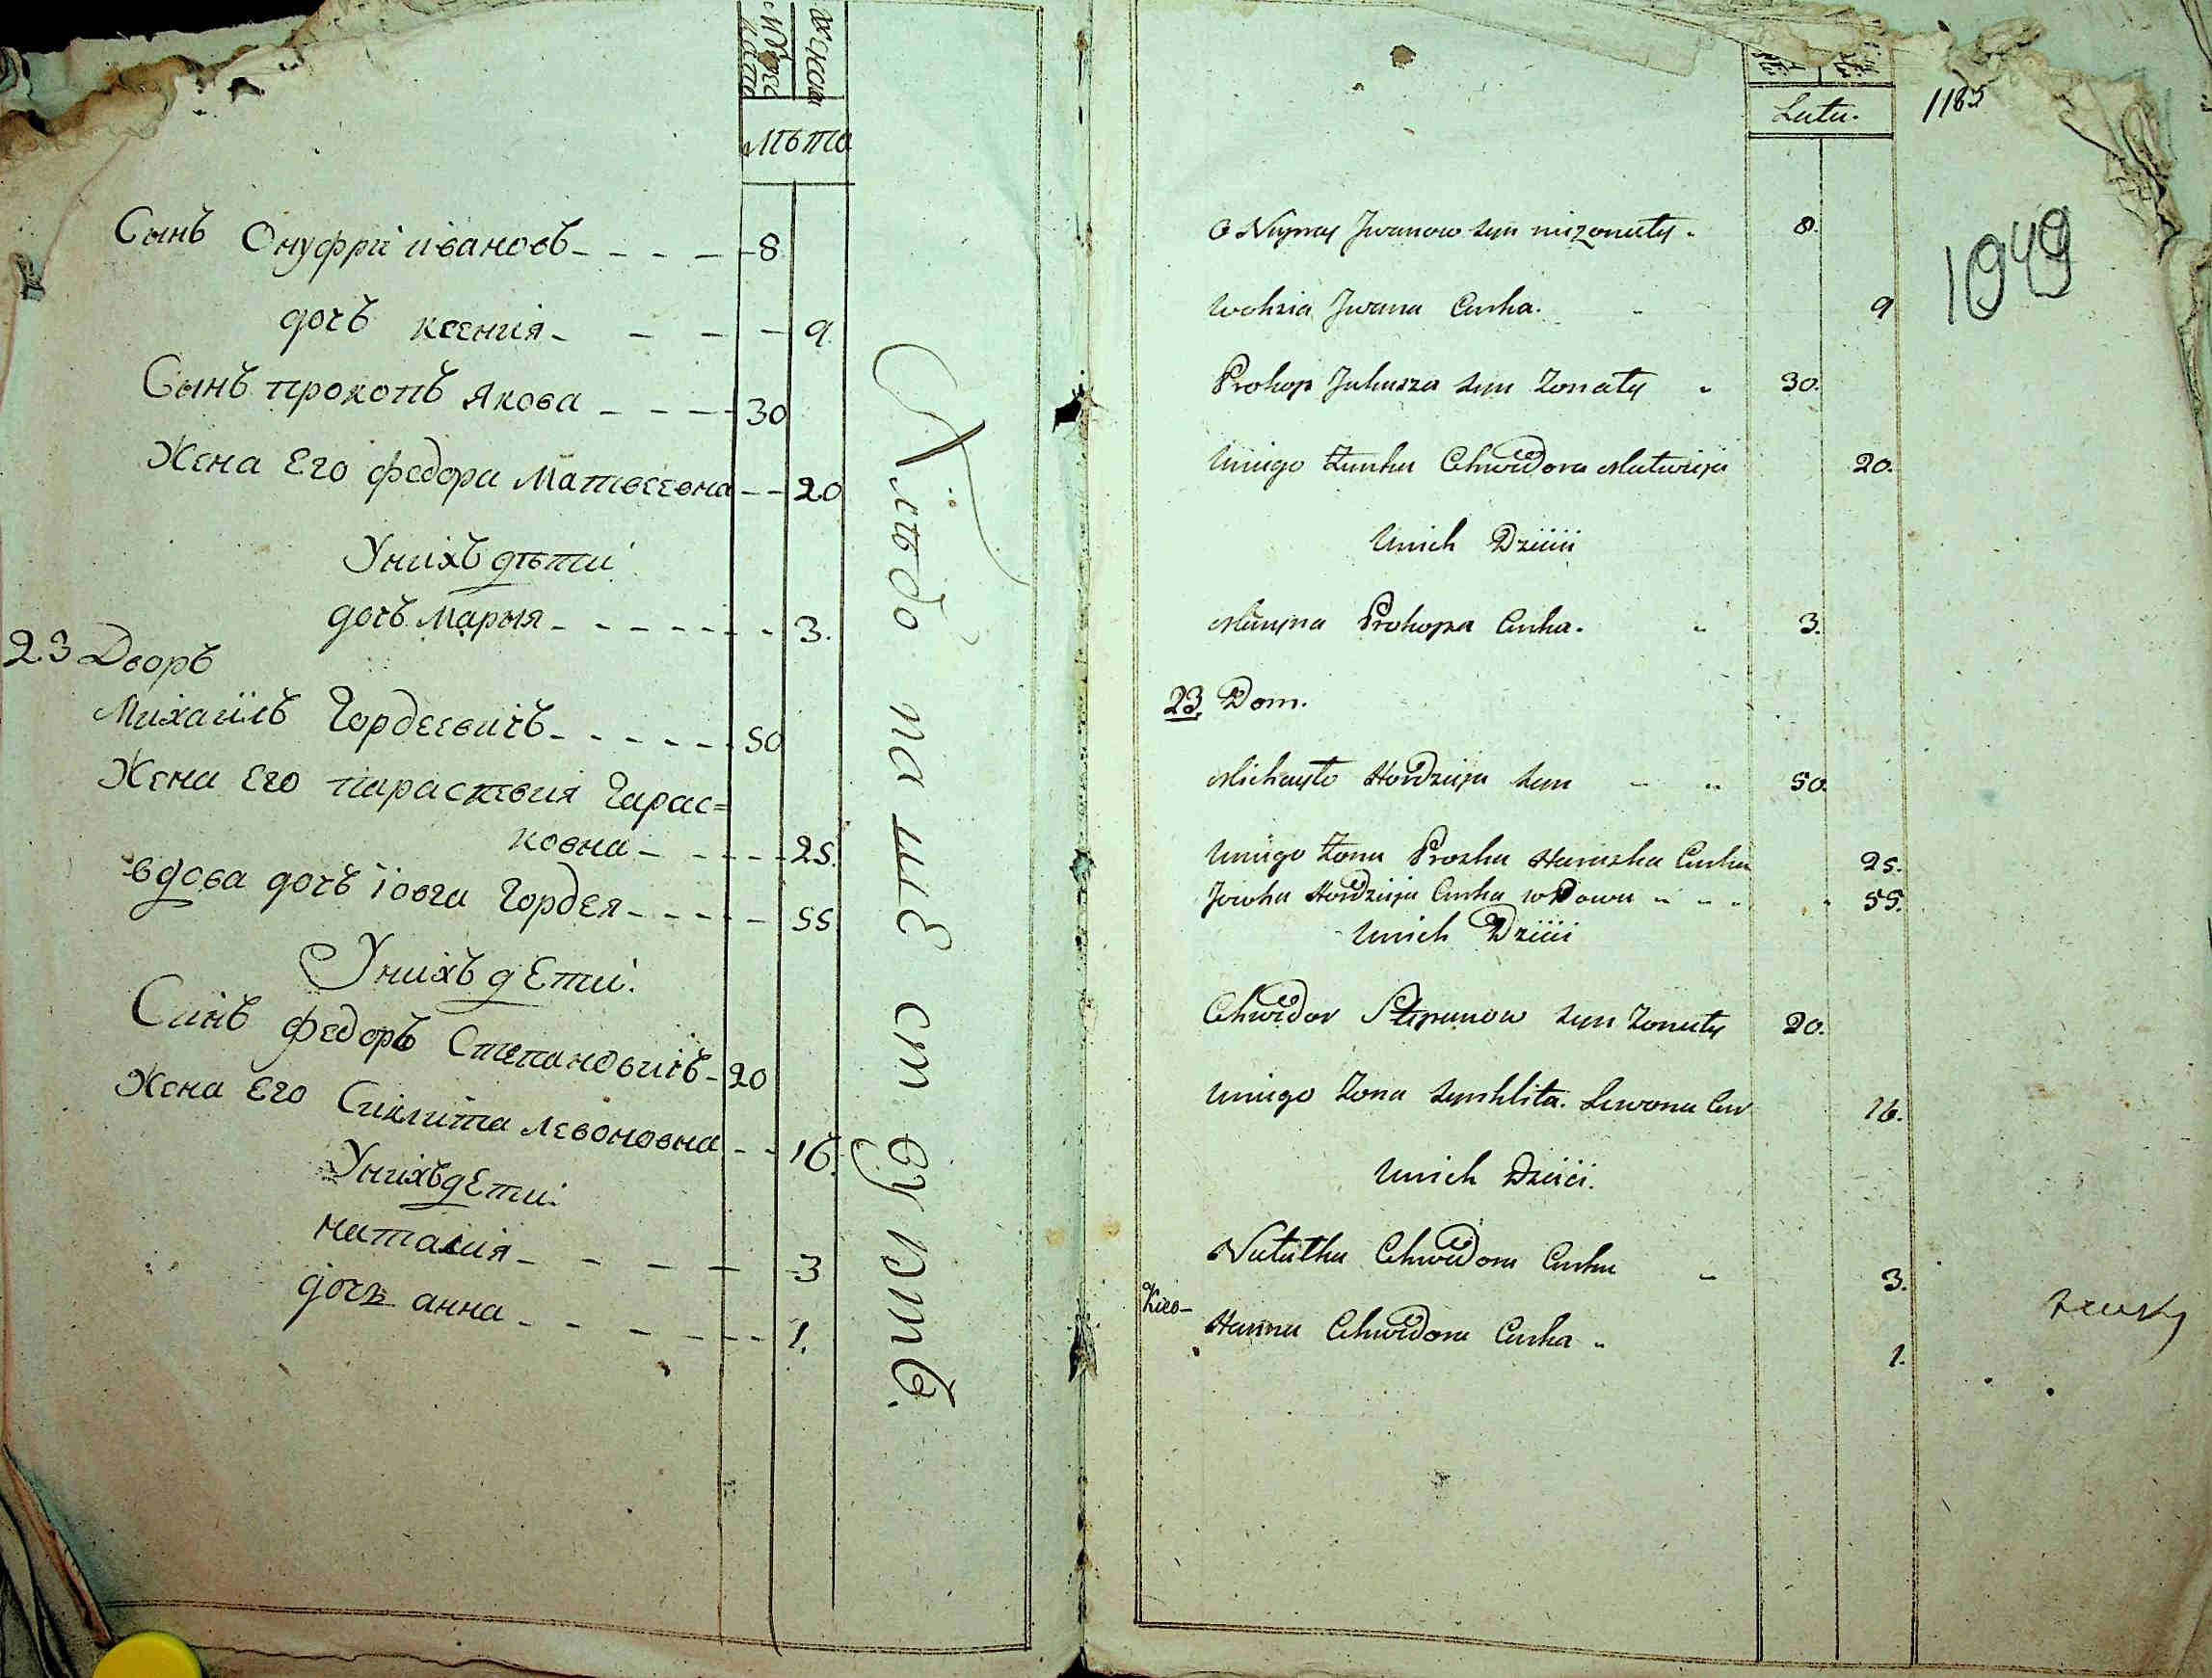 Мужеска
пола
женска
лѣта
Сынъ Онуфри ивановъ - - - - 8
дочъ ксения - - - - 9.
Сынъ прокопъ Якова - - - - 30
Жена Его федора Матвеевна - - 20
Унихъ дѣти
дочъ Марыя - - - - - - - 3.
23 Дворъ
Михаилъ Гордеевичъ - - - - - - 50
Жена Его параскевия Гарас=
ковна - - - - - 25.
вдова дочъ Iовга Гордея - - - - - 55
Унихъ дЕти.
Синъ федоръ Степановичъ - 20
Жена Его Сиклита левоновна - - 16.
УнихъдЕти.
наталия - - - - 3
дочъ анна - - - - - - - 1.
Latu.
1185
1949
O Nupray Jwanow syn nizonaty. 8.
Jwana Curka. 9
Prokop Jakusza syn Zonaty 30.
Uniego Zonka Chwedora Matwieja 20.
Unich Dzieci
Maryna Prokopa Curka. 3.
23. Dom.
Michayło Hordzieja syn 50.
Uniego Zona Proska Haraska Curka 25.
Jowha Hordzieja Curka wdowa 55.
Unich Dzieci
Chwedor Stepanow syn Zonaty 20.
Uniego Zona Synklita. Lewona Cur 16.
Unich Dzieci.
Natalka Chwedora Curka 3.
Hanna Chwedora Curka 1.